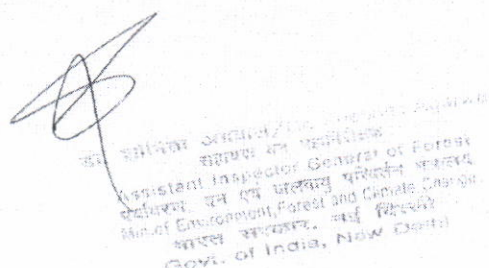 डॉ. अग्रवाल/Dr. Agarwal
सहायक वन महानिरीक्षक
Assistant Inspector General of Forest
पर्यावरण, वन एवं जलवायु परिवर्तन मंत्रालय
Min. of Environment, Forest and Climate Change
भारत सरकार, नई दिल्ली
Govt. of India, New Delhi